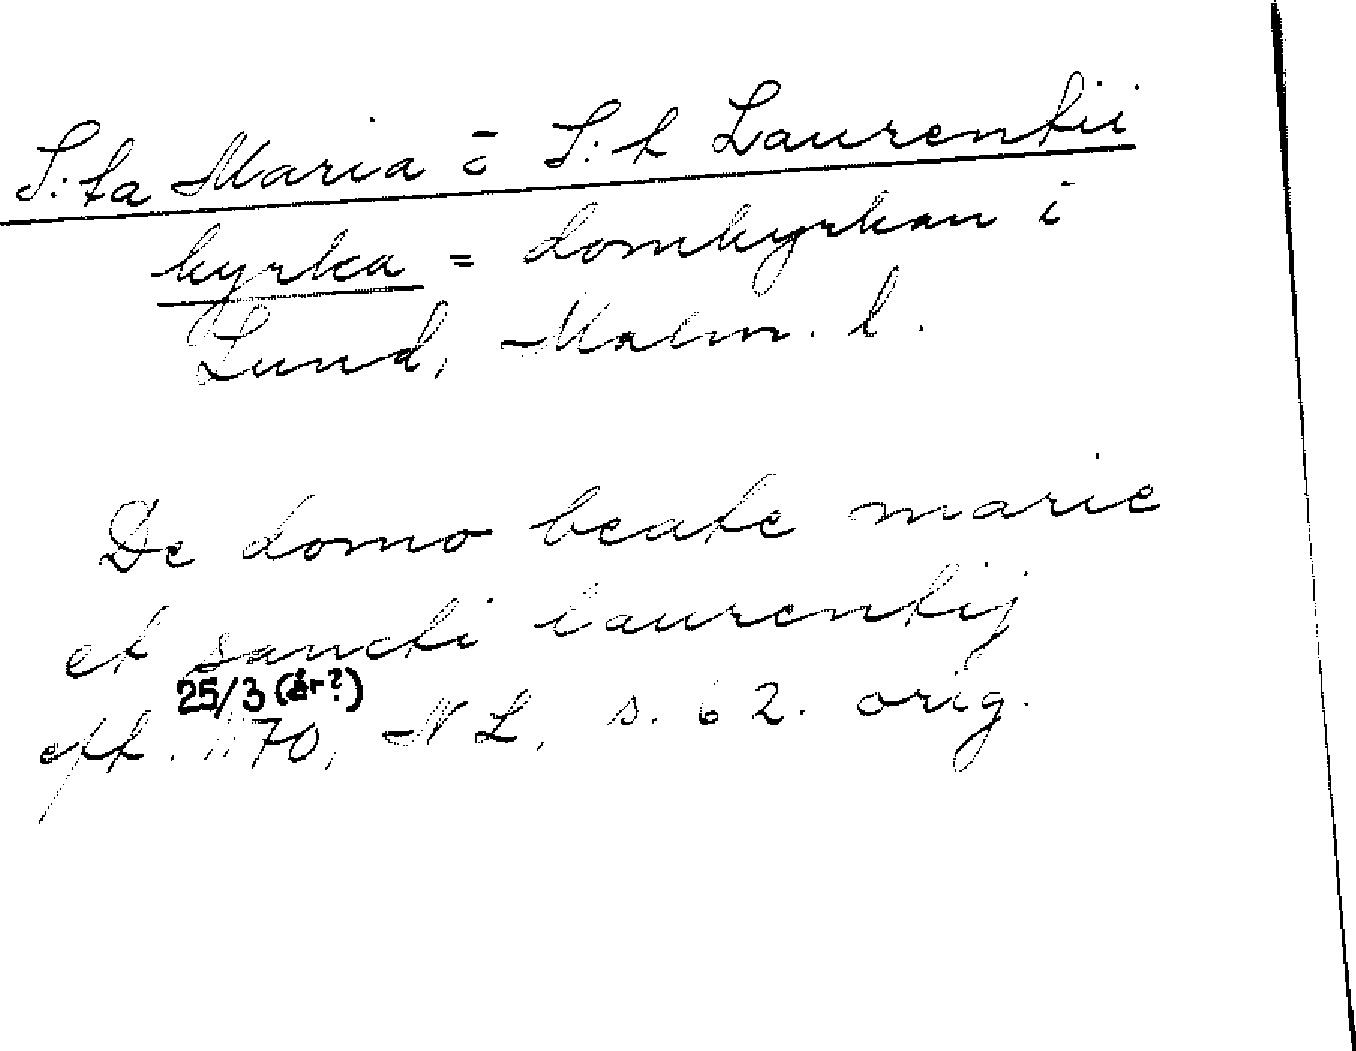 S:ta Maria o S:t Laurentii
kyrka = domkyrkan i
Lund, Malm. l.
De domo beate marie
et sancti laurentij
25/3 (år?)
eft. 1170, NL, s. 62. orig.